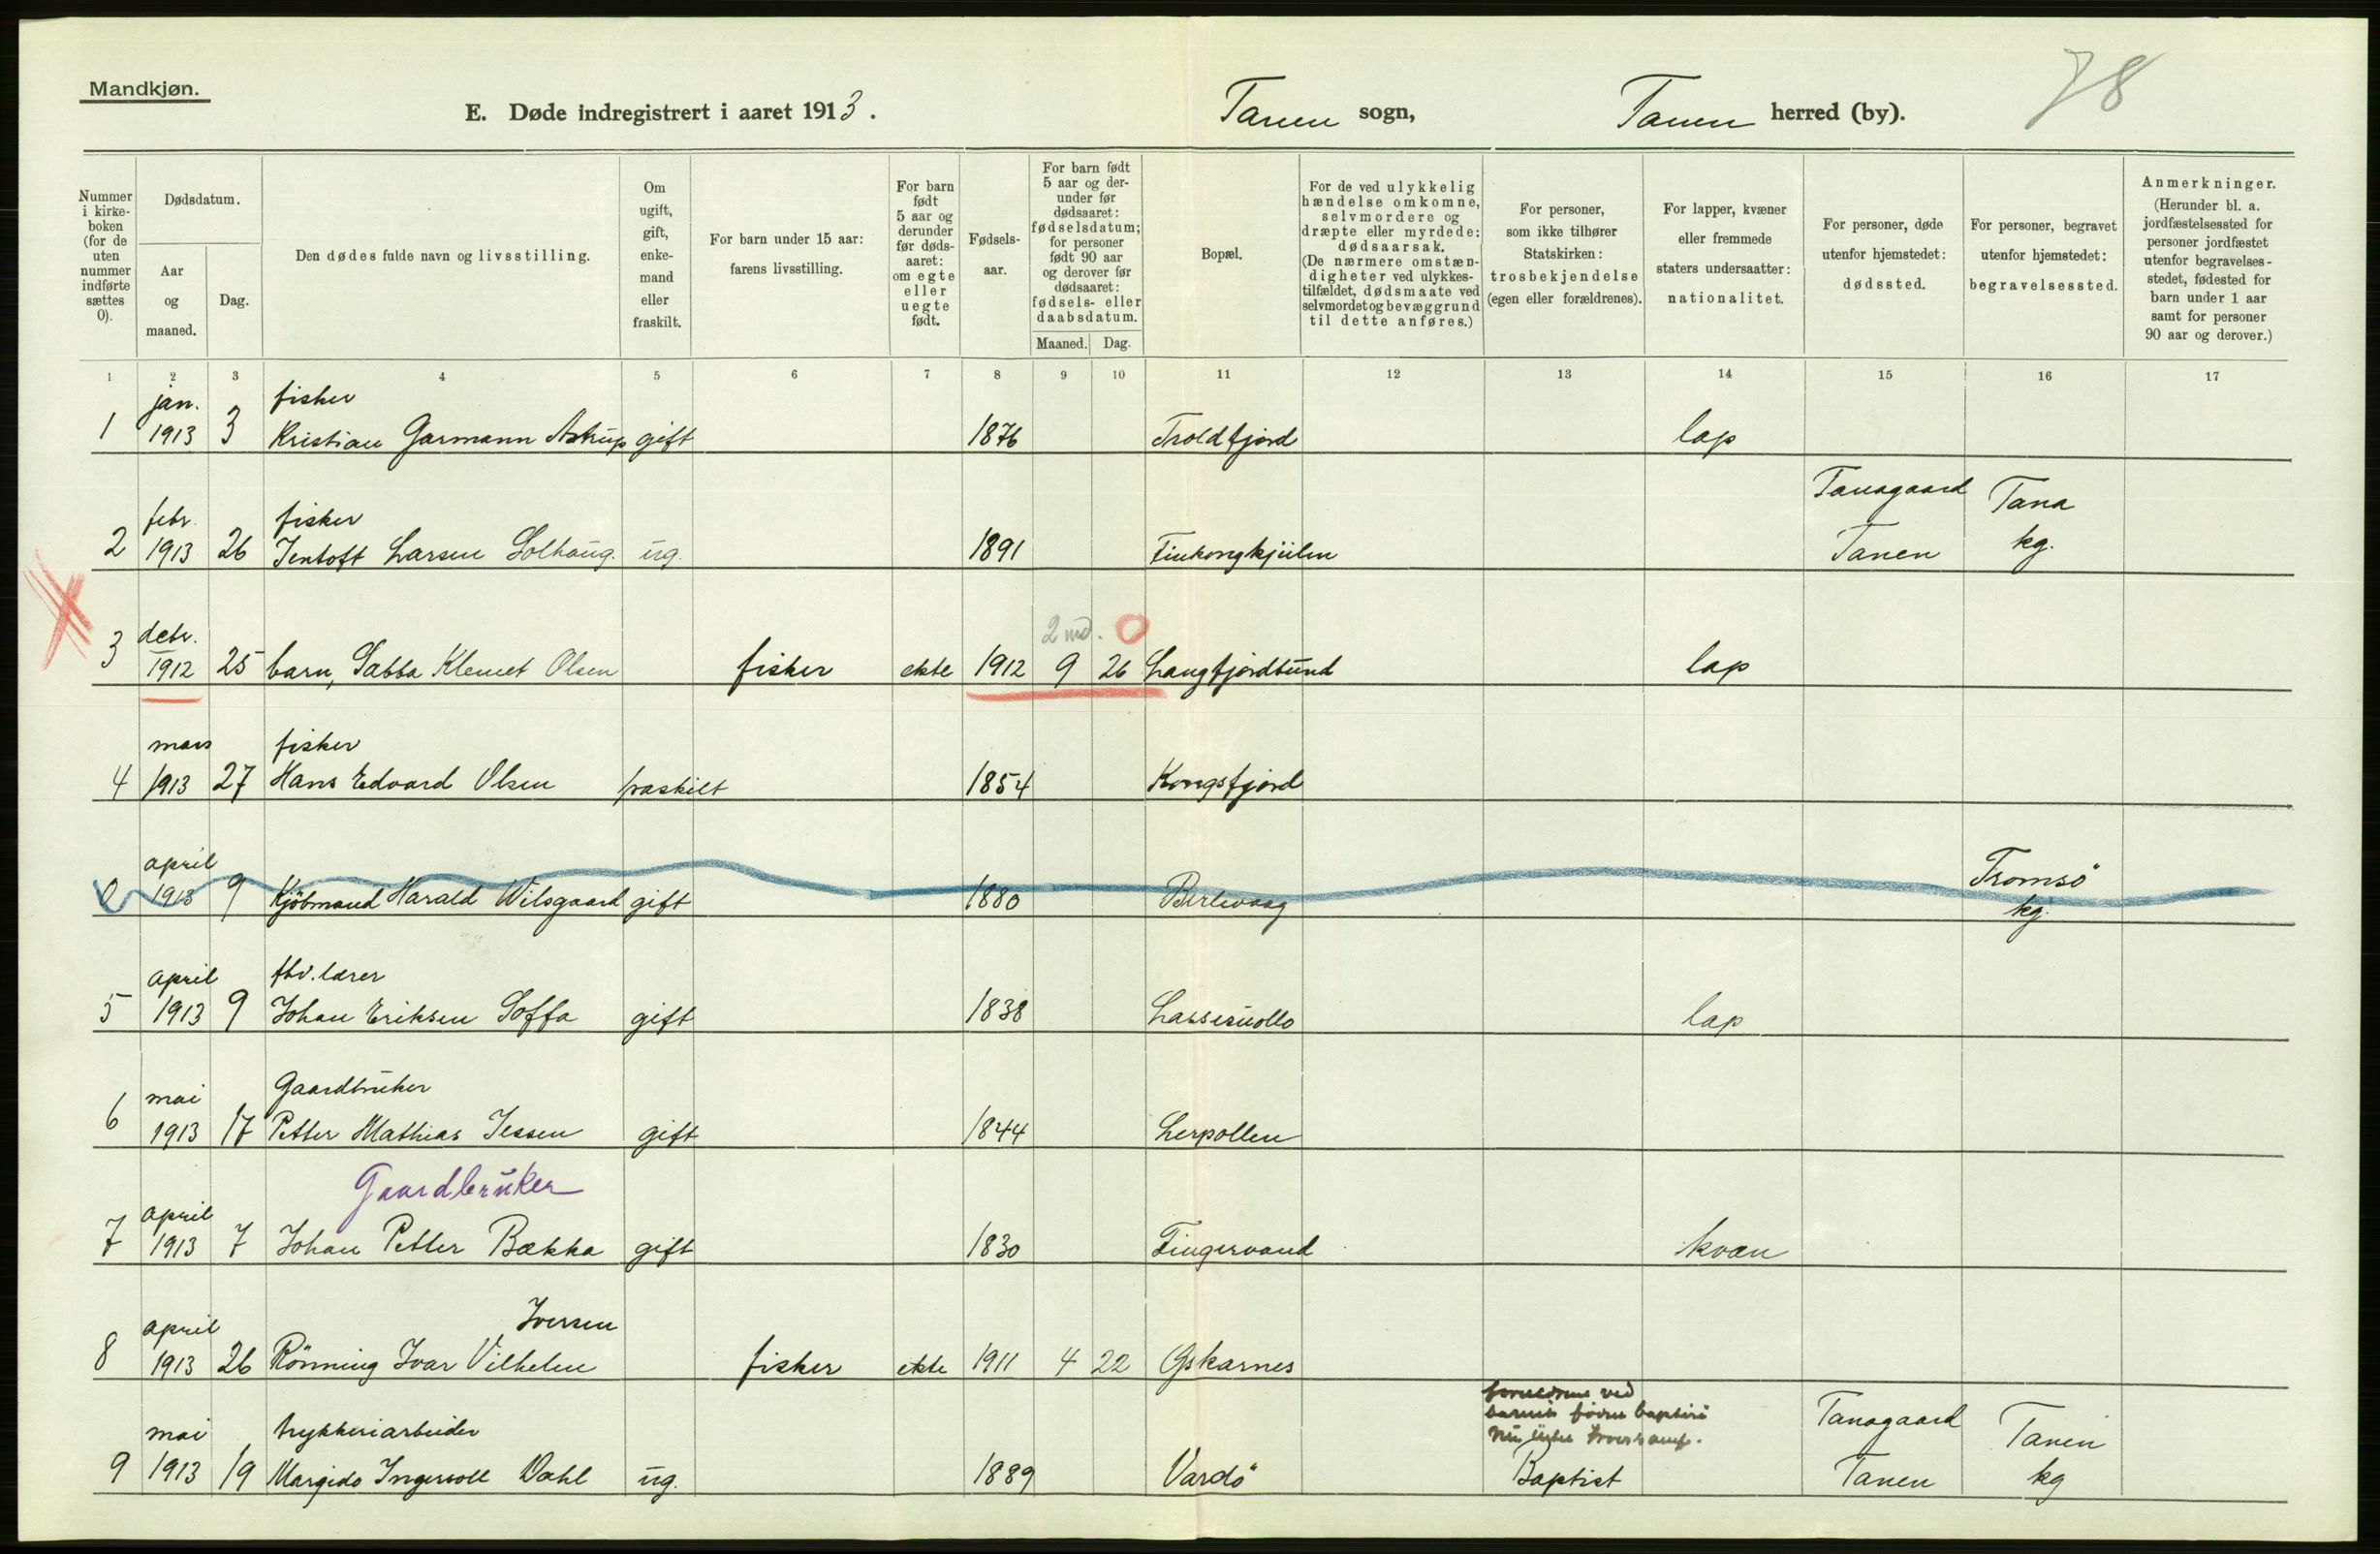 Mandkjøn.
E. Døde indregistrert i aaret 1913. Tanen sogn, Tanen herred (by). 78
Nummer i kirkeboken (for de uten nummer indførte sættes 0).
Dødsdatum.
Aar og maaned.
Dag.
Den dødes fulde navn og livsstilling.
Om ugift, gift, enkemand eller fraskilt.
For barn under 15 aar: farens livsstilling.
For barn født 5 aar og derunder før dødsaaret: om egte eller uegte født.
Fødselsaar.
For barn født 5 aar og derunder før dødsaaret: fødselsdatum; for personer født 90 aar og derover før dødsaaret: fødsels- eller daabsdatum.
Maaned. Dag.
Bopæl.
For de ved ulykkelig hændelse omkomne, selvmordere og dræpte eller myrdede: dødsaarsak. (De nærmere omstændigheter ved ulykkestilfældet, dødsmaate ved selvmordet og bevæggrund til dette anføres.)
For personer, som ikke tilhører Statskirken: trosbekjendelse (egen eller forældrenes).
For lapper, kvæner eller fremmede staters undersaatter: nationalitet.
For personer, døde utenfor hjemstedet: dødssted.
For personer, begravet utenfor hjemstedet: begravelsessted.
Anmerkninger. (Herunder bl. a. jordfæstelsessted for personer jordfæstet utenfor begravelsesstedet, fødested for barn under 1 aar samt for personer 90 aar og derover.)
1 2 3 4 5 6 7 8 9 10 11 12 13 14 15 16 17
jan. fisker
1 1913 3 Kristian Garmann Astrup gift 1876 Troldfjord lap
febr. fisker Tanagaard Tana
2 1913 26 Jentoft Larsen Solhaug. ug. 1891 Finkongkjeilen Tanen kg.
decbr. 2 md. 0
3 1912 25 barn, Sabba Klemet Olsen fisker ekte 1912 9 26 Langfjordbund lap
mars fisker
4 1913 27 Hans Edvard Olsen fraskilt 1854 Kongsfjord
april Tromsö
0 1913 9 Kjöbmand Harald Wilsgaard gift 1880 Berlevaag kg.
april fhv. lærer
5 1913 9 Johan Eriksen Soffa gift 1838 Lassesuollo lap
mai Gaardbruker
6 1913 17 Petter Mathias Jessen gift 1844 Lerpollen
Gaardbruker
april
7 1913 7 Johan Petter Bækka gift 1830 Fingervand kvæn
april Iversen
8 1913 26 Rönning Ivar Vilhelm fisker ekte 1911 4 22 Oskarnes
forældrene ved
barnets
mai trykkeriarbeider Tanagaard Tanen
9 1913 19 Margido Ingervoll Dahl ug. 1889 Vardö Baptist Tanen kg